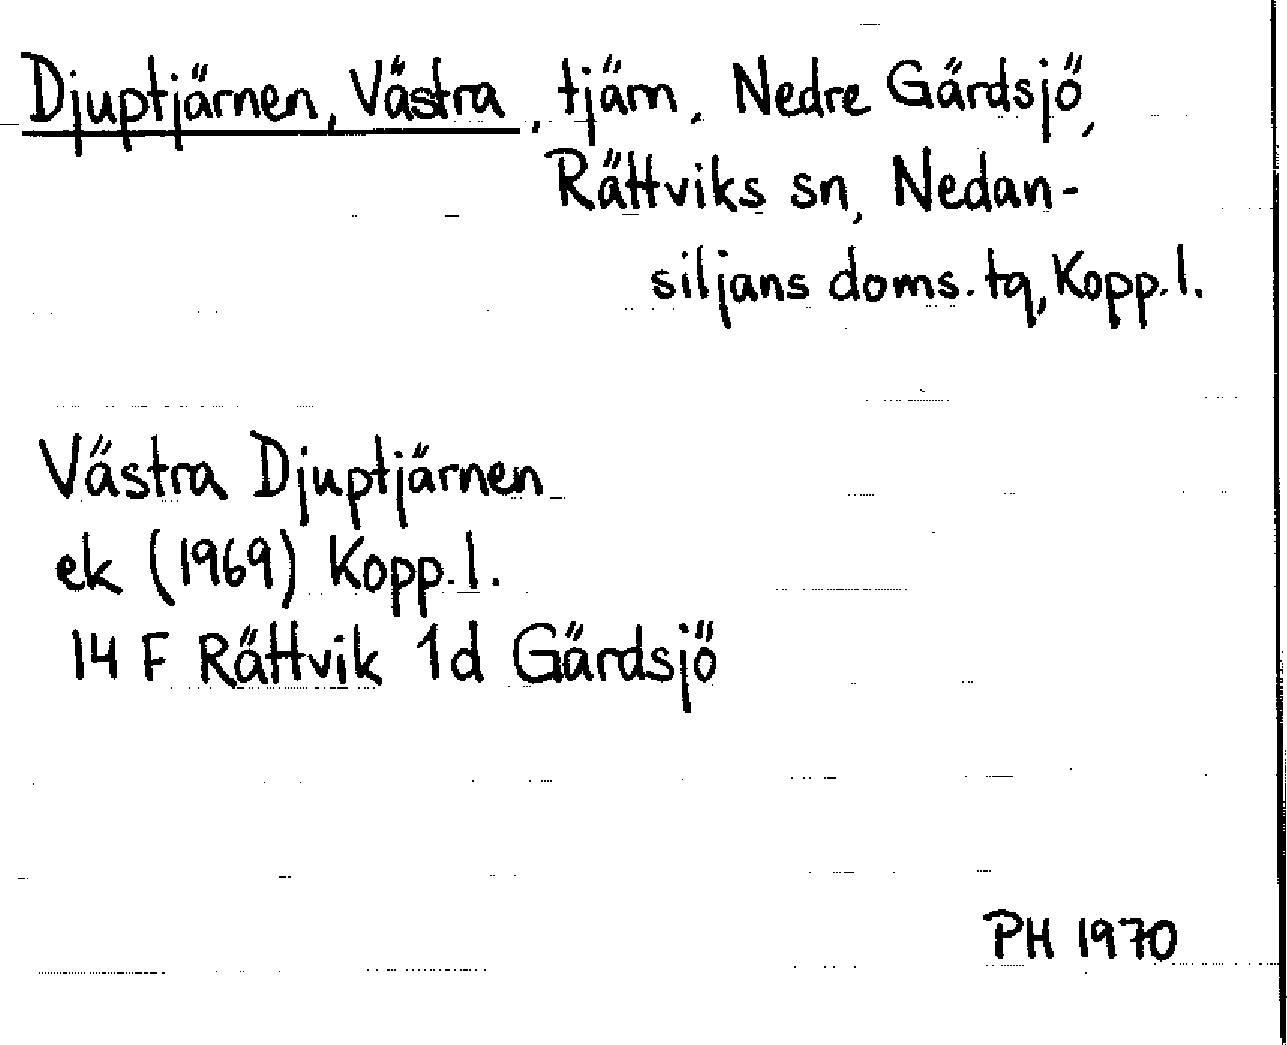 Djuptjärnen, Västra, tjärn, Nedre Gärdsjö,
Rättviks sn, Nedan-
siljans doms. tg, Kopp. l.
Västra Djuptjärnen
ek (1969) Kopp. l.
14 F Rättvik 1d Gärdsjö
PH 1970